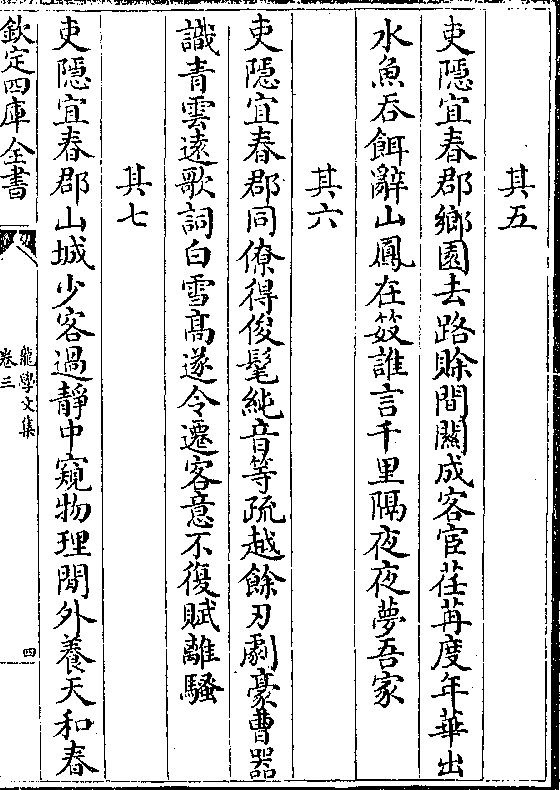 其五
吏隱宜春郡鄉園去路賖間闗成客宦荏苒度年華出
水魚吞餌辭山鳳在笯誰言千里隔夜夜夢吾家
其六
吏隱宜春郡同僚得俊髦純音等疏越餘刃劇豪曹器
識青雲逺歌詞白雪髙遂令遷客意不復賦離騷
其七
吏隱宜春郡山城少客過靜中窺物理閒外養天和春
欽定四庫全書
龍學文集
卷三
四